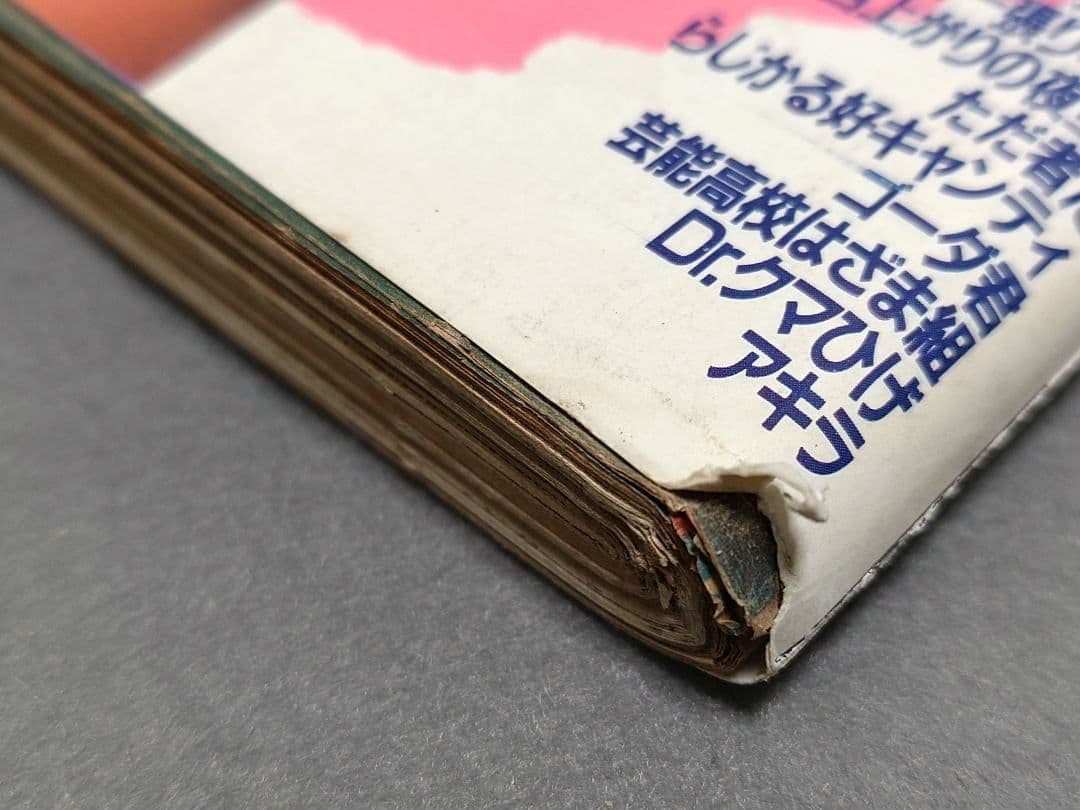 張り
上がりの夜
ただ者
らじかる好キャンディ
ゴーダ君
芸能高校はざま組
Dr.クマひげ
アキラ